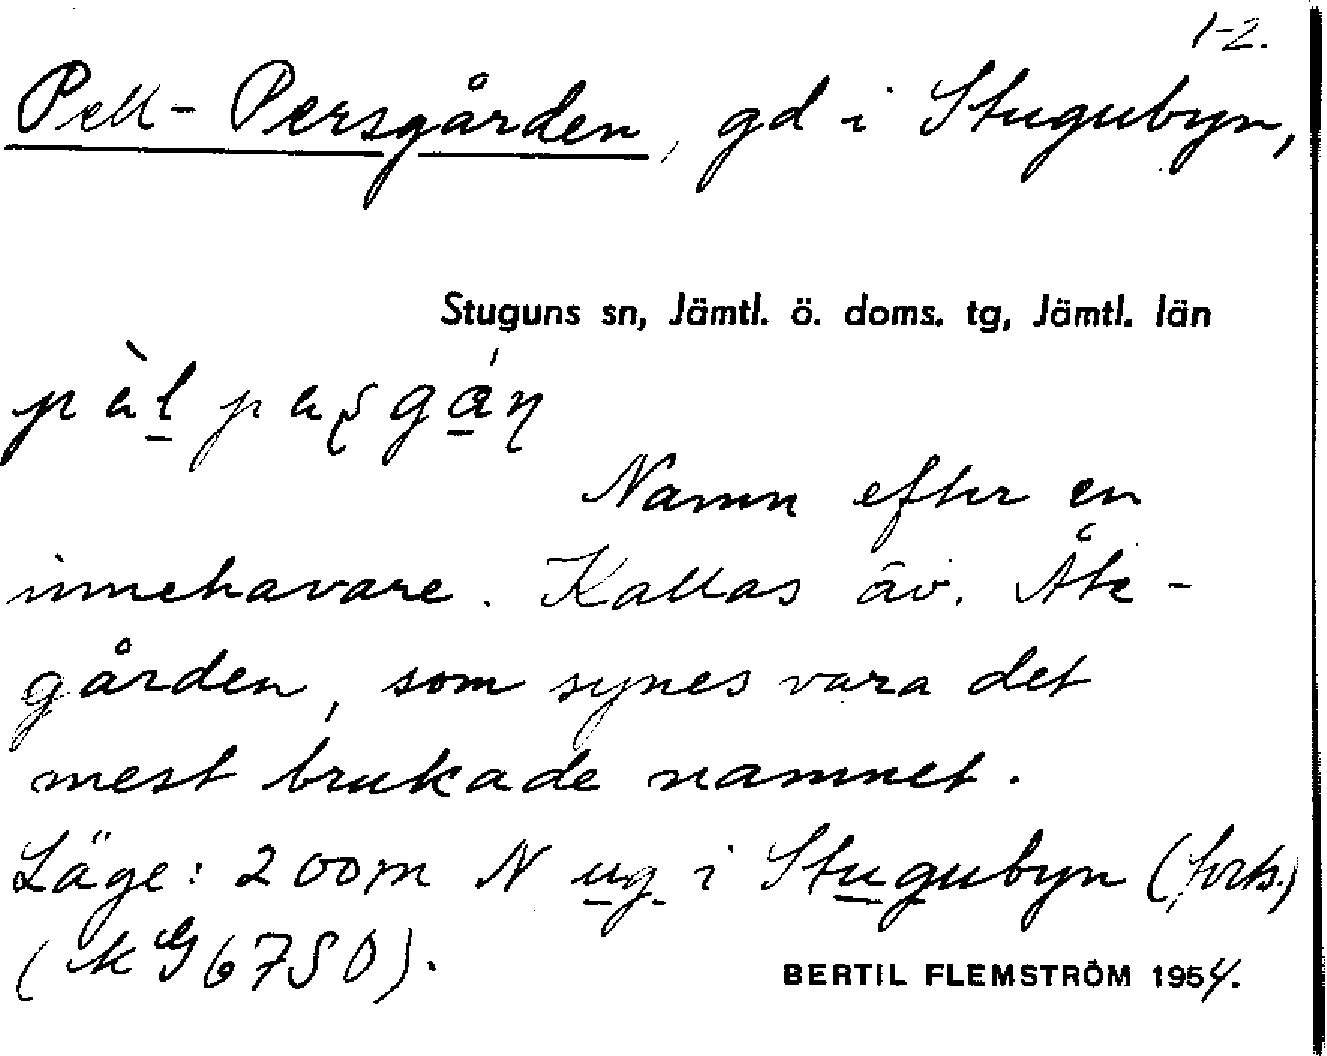 1-2.
Pell-Persgården, gd i Stugubyn,
Stuguns sn, Jämtl. ö. doms. tg, Jämtl. län
Namn efter en
innehavare. Kallas äv. Åk-
gården, som synes vara det
mest brukade namnet.
Läge: 200m N ug i Stugubyn (forts.)
BERTIL FLEMSTRÖM 1954.